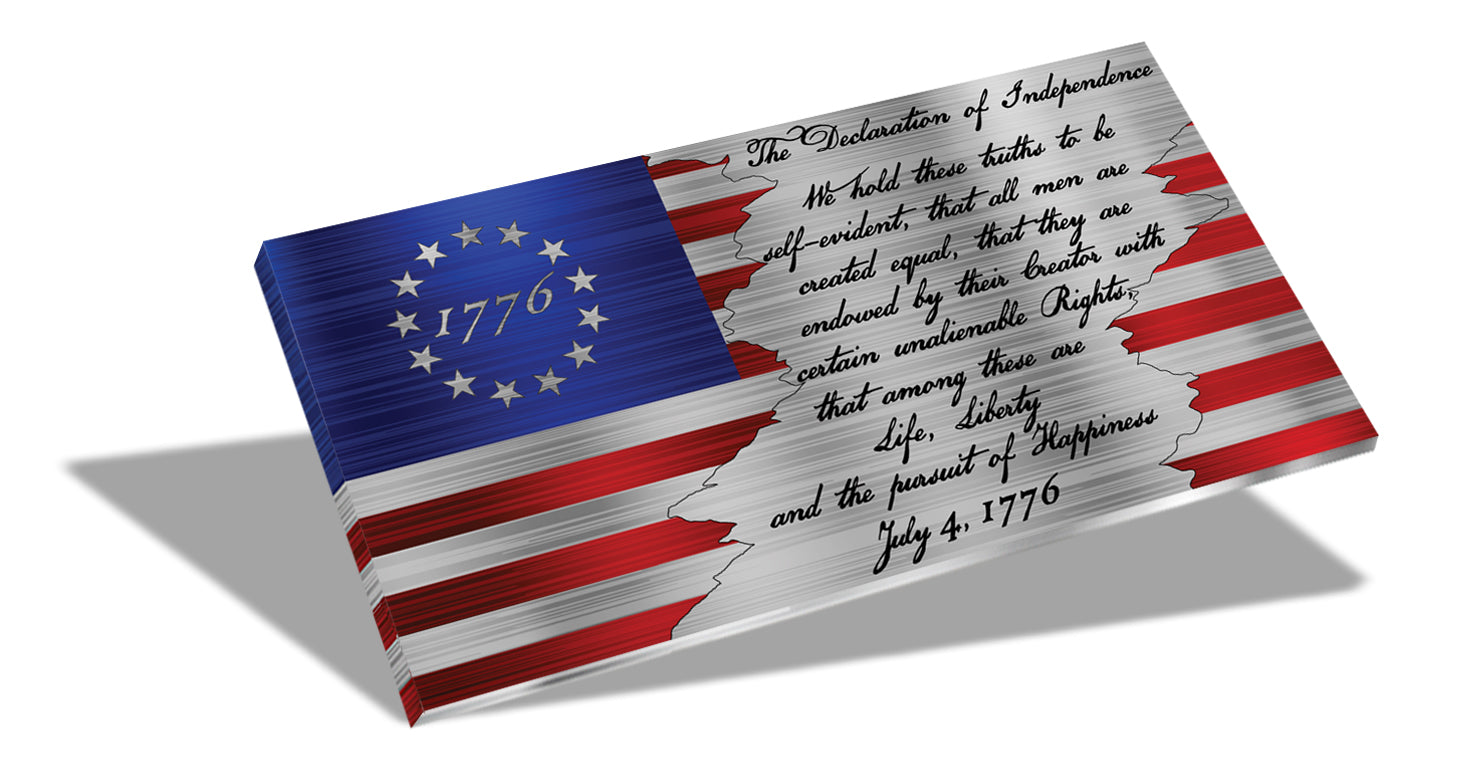 1776
The Declaration of Independence
We hold these truths to be
self-evident, that all men are
created equal, that they are
endowed by their Creator with
certain unalienable Rights,
that among these are
Life, Liberty
and the pursuit of Happiness
July 4, 1776